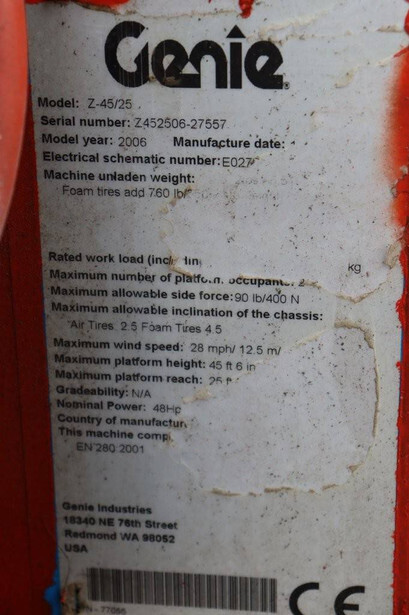 Genie
Model: Z-45/25
Serial number: Z452506-27557
Model year: 2006 Manufacture date:
Electrical schematic number: E027
Machine unladen weight:
Foam tires add 760 lb/
Rated work load
kg
Maximum number of platform occupants: 2
Maximum allowable side force: 90 lb/400 N
Maximum allowable inclination of the chassis:
Air Tires 2.5 Foam Tires 4.5
Maximum wind speed: 28 mph/ 12.5 m/
Maximum platform height: 45 ft 6 in
Maximum platform reach: 25 ft
Gradeability: N/A
Nominal Power: 48Hp
Country of manufactur
This machine compl
EN 280 2001
Genie Industries
18340 NE 76th Street
Redmond WA 98052
USA
CE